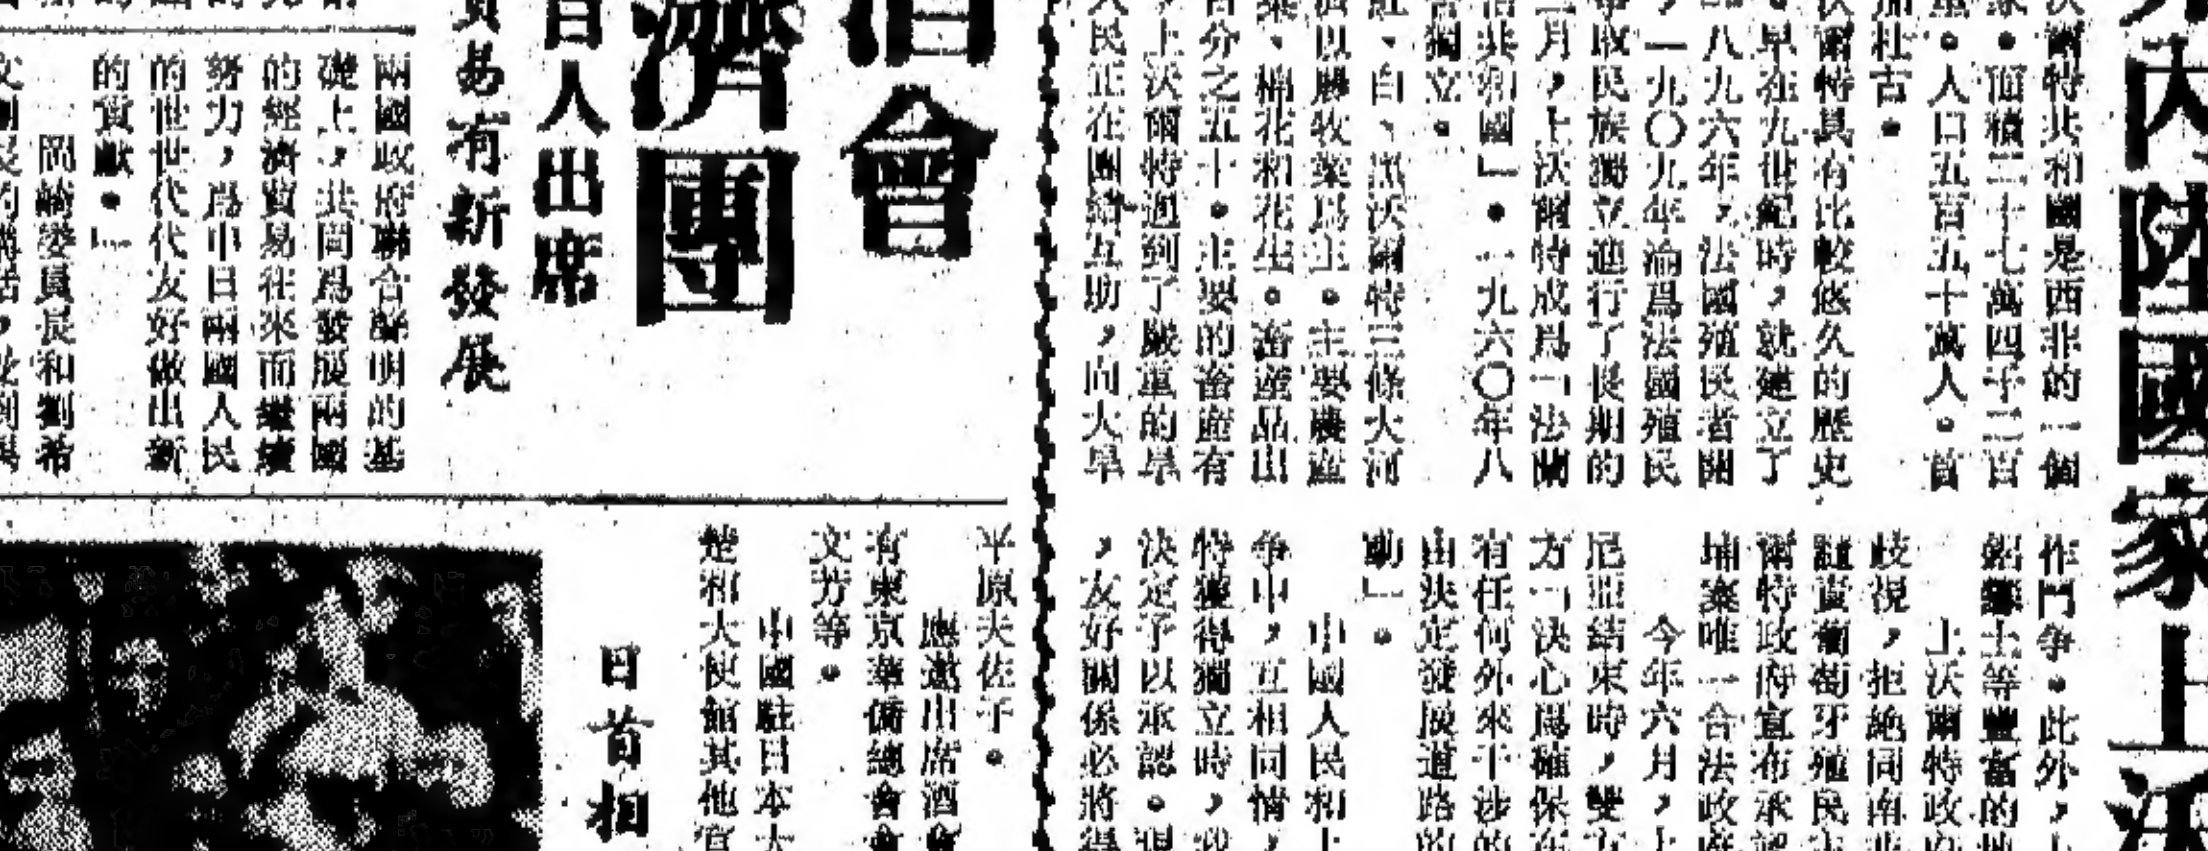 內陸國家上沃
沃爾特共和國是西非的一個
家。面積二十七萬四千二百
。人口五百五十萬人。首
加杜古。
沃爾特具有比較悠久的歷史
。早在九世紀時,就建立了
一八九六年,法國殖民者開
,一九〇九年淪爲法國殖民
爭取民族獨立進行了長期的
二月,上沃爾特成爲「法蘭
治共和國」。一九六〇年八
獨立。
紅、白、黑沃爾特三條大河
濟以農牧業爲主。主要農產
棉花和花生。畜產品出
百分之五十。主要的畜產有
,上沃爾特遇到了嚴重的旱
人民正在團結互助,向大旱
作鬥爭。此外,上
鋁鑛土等豐富的地
上沃爾特政府
歧視,拒絕同南非
譴責葡萄牙殖民主
爾特政府宣布承認
埔寨唯一合法政府
今年六月,上
尼亞結束時,雙方
方「決心爲確保在
有任何外來干涉的
由決定發展道路的
動」。
中國人民和上
爭中,互相同情,
特獲得獨立時,我
決定予以承認。現
,友好關係必將得
酒會
濟團
百人出席
貿易有新發展
兩國政府聯合聲明的基
礎上,共同爲發展兩國
的經濟貿易往來而繼續
努力,爲中日兩國人民
的世世代代友好做出新
的貢獻。」
岡崎委員長和劉希
平原夫佐子。
應邀出席酒會
有東京華僑總會會
文芳等。
中國駐日本大
楚和大使館其他官
日首相